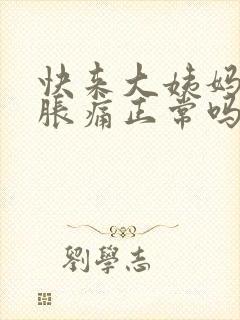 快来大姨妈
胀痛正常吗
劉學志